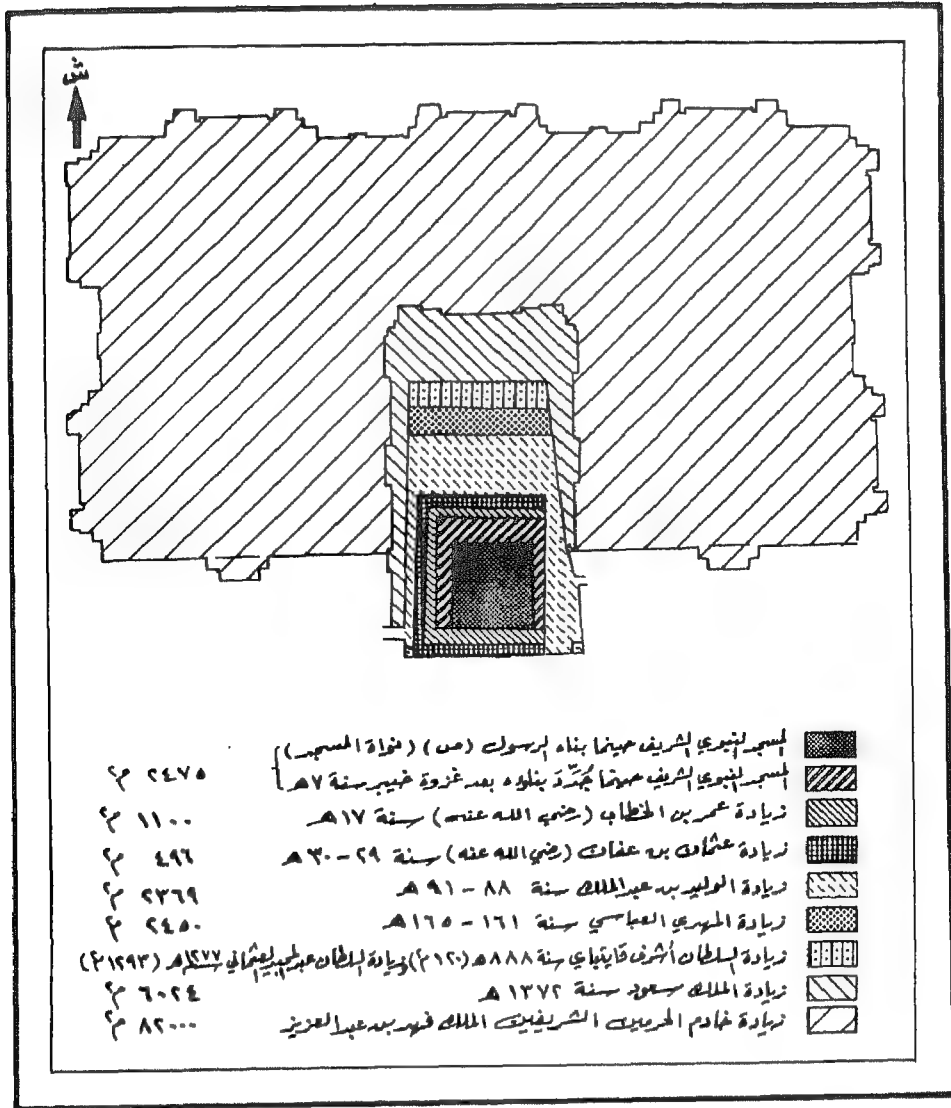 ش
المسجد النبوي الشريف حينما بناه الرسول (ص) (نواة المسجد)
المسجد النبوي الشريف حينما جُدّد بناؤه بعد غزوة خيبر سنة ٧هـ ٢٤٧٥ م٢
زيادة عمر بن الخطاب (رضي الله عنه) سنة ١٧هـ ١١٠٠ م٢
زيادة عثمان بن عفان (رضي الله عنه) سنة ٢٩-٣٠هـ ٤٩٦ م٢
زيادة الوليد بن عبد الملك سنة ٨٨-٩١هـ ٢٣٦٩ م٢
زيادة المهدي العباسي سنة ١٦١-١٦٥هـ ٢٤٥٠ م٢
زيادة السلطان أشرف قايتباي سنة ٨٨٨هـ (١٢٠م٢) زيادة السلطان عبد المجيد العثماني سنة ١٢٧٧هـ (١٢٩٣م٢)
زيادة الملك سعود سنة ١٣٧٢هـ ٦٠٢٤ م٢
زيادة خادم الحرمين الشريفين الملك فهد بن عبد العزيز ٨٢٠٠٠ م٢